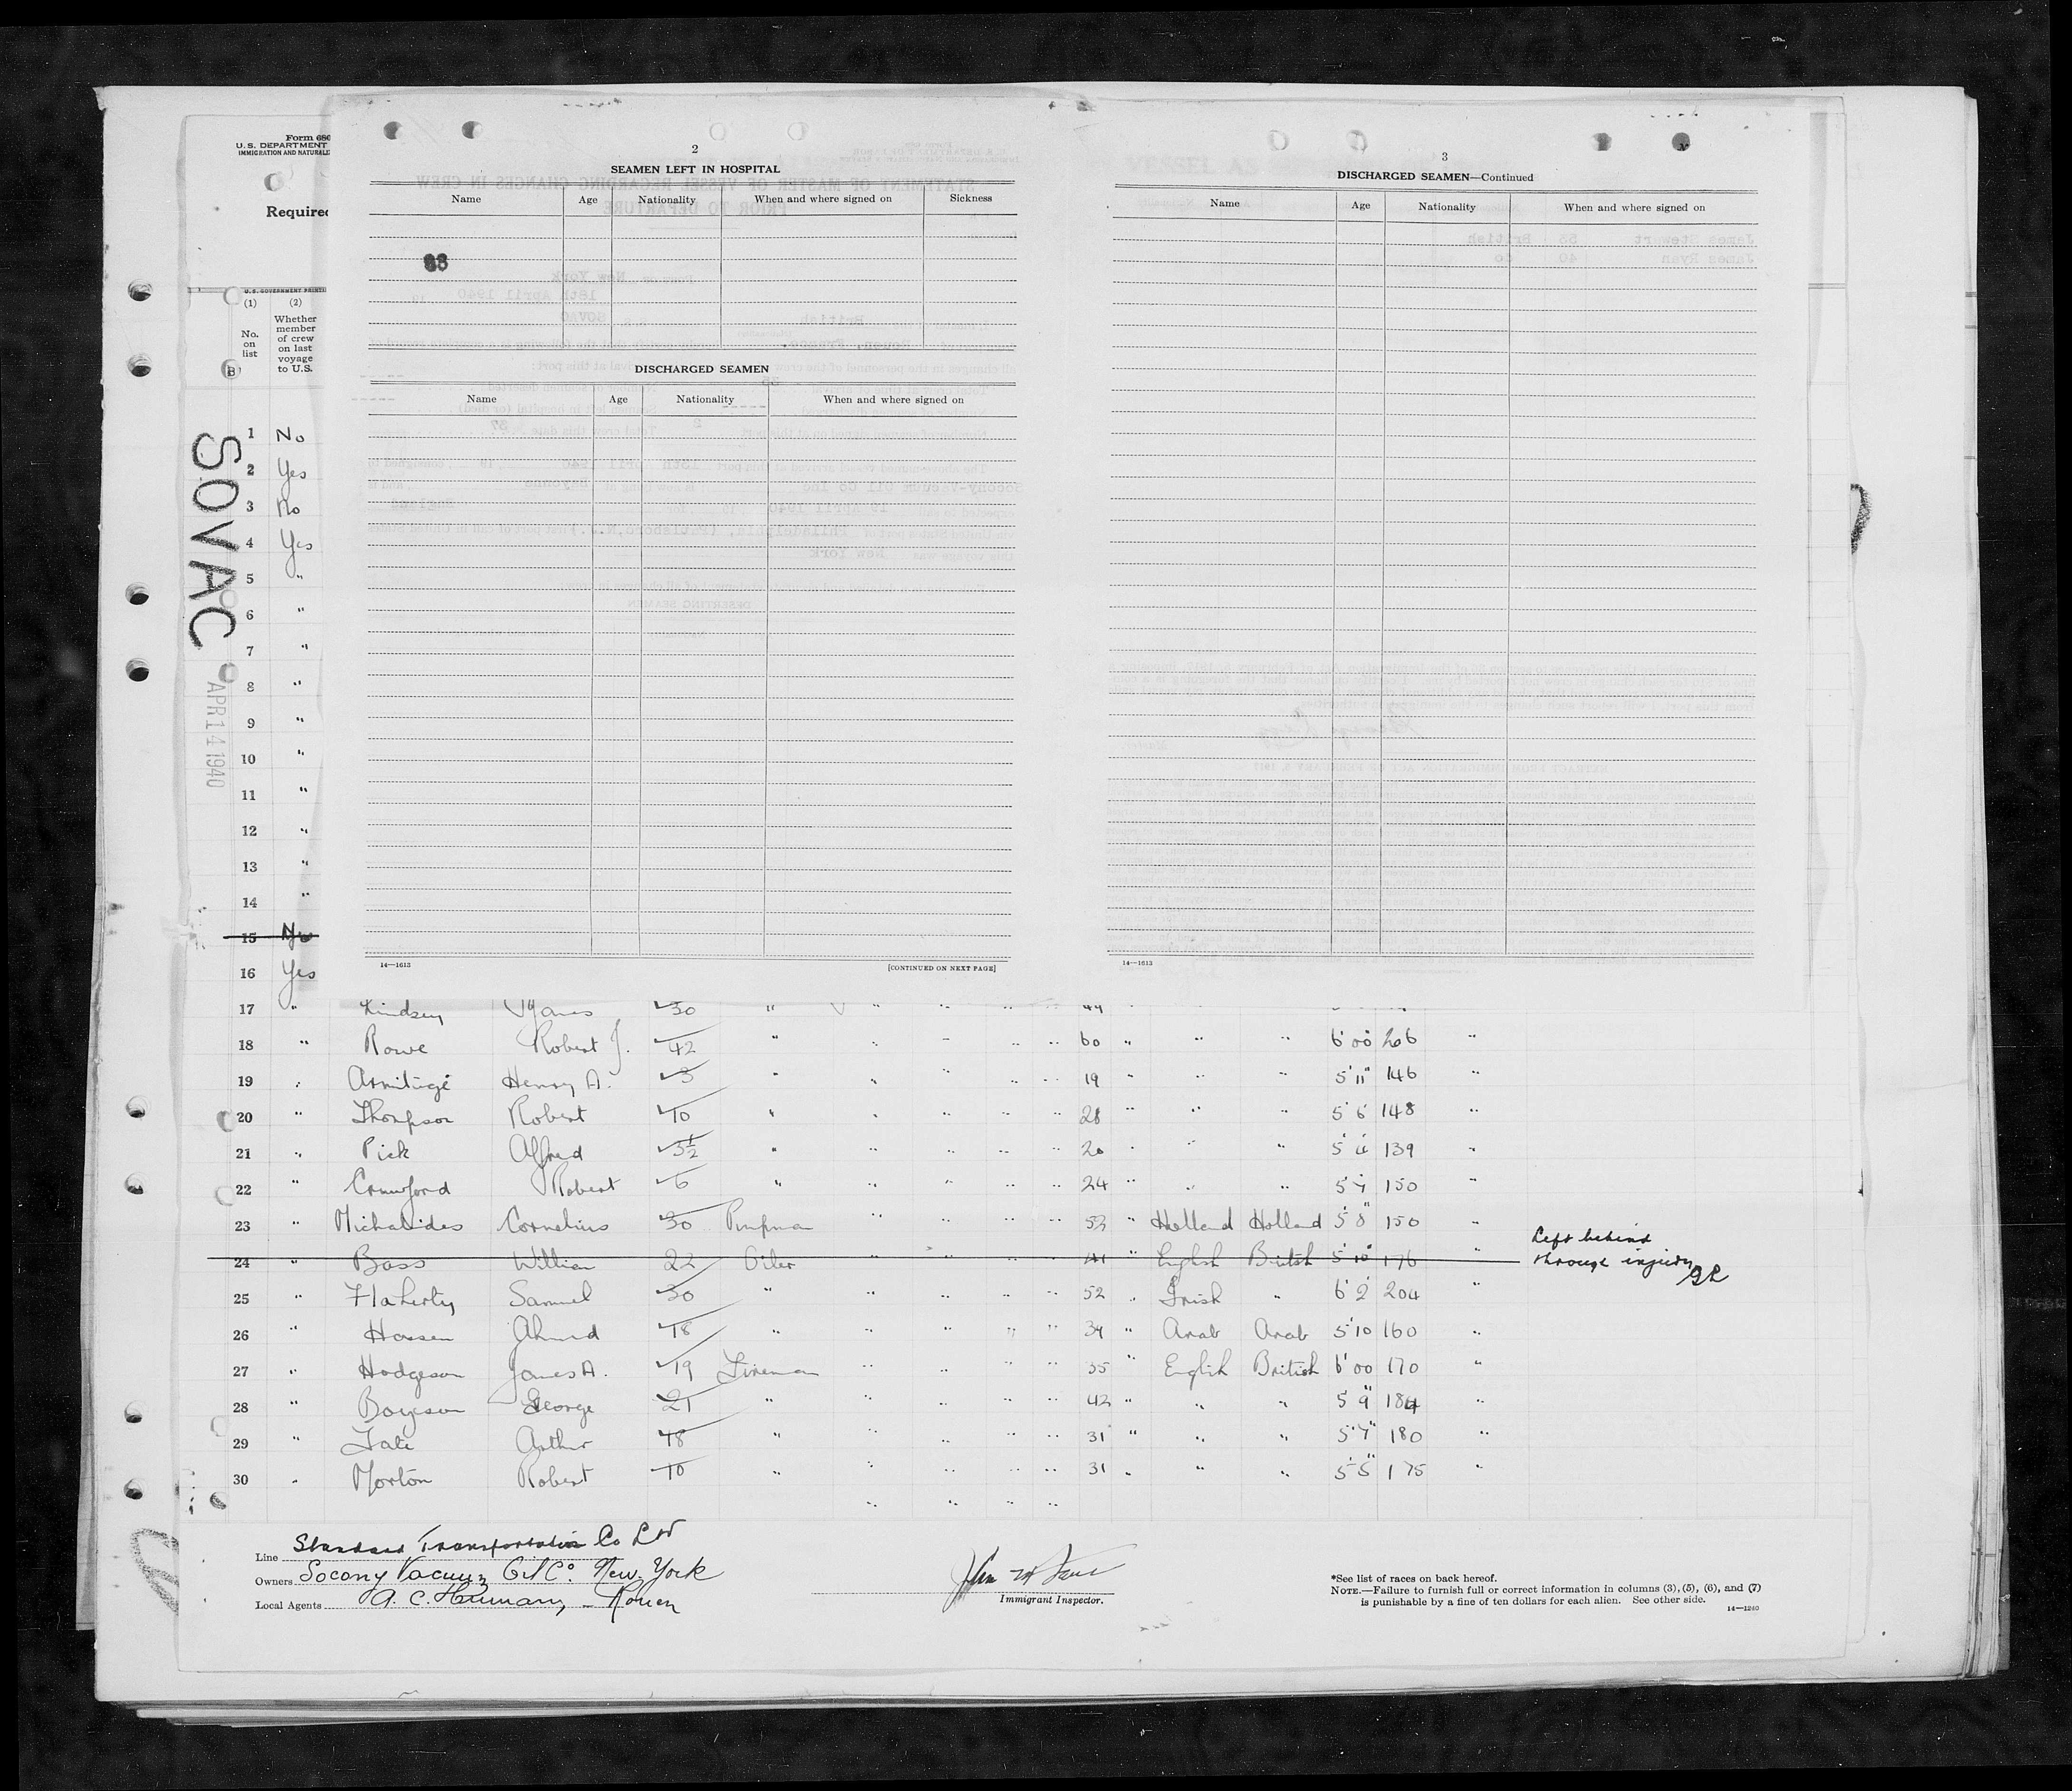 Form 680
U.S. DEPARTMENT
IMMIGRATION AND NATURALIZ
Required
U. S. GOVERNMENT PRINTI
(1) (2)
No. on list
Whether member of crew on last voyage to U.S.
SOVAC
APR 14 1940
2
SEAMEN LEFT IN HOSPITAL
Name Age Nationality When and where signed on Sickness
DISCHARGED SEAMEN
Name Age Nationality When and where signed on
14—1613 [CONTINUED ON NEXT PAGE]
3
DISCHARGED SEAMEN—Continued
Name Age Nationality When and where signed on
14—1613
1 No
2 Yes
3 No
4 Yes
5 "
6 "
7 "
8 "
9 "
10 "
11 "
12 "
13 "
14 "
15
16 Yes
17 " Lindsey James 30 " " " " " 44 "
18 " Rowe Robert J. 42 " " " " " 60 " " " 6'00 206 "
19 " Armitage Henry A. 3 " " " " " 19 " " " 5'11" 146 "
20 " Thompson Robert 10 " " " " " 28 " " " 5'6 148 "
21 " Pick Alfred 3½ " " " " " 20 " " " 5'4 139 "
22 " Crawford Robert 6 " " " " " 24 " " " 5'7 150 "
23 " Michalides Cornelius 30 Pumpman " " " " 52 " Holland Holland 5'8" 150 "
24 " Bass William 22 Oiler " " " " 41 " English British 5'10" 176 " Left behind
through injury GR
25 " Flaherty Samuel 30 " " " " " 52 " Irish " 6'2 204 "
26 " Hassen Ahmed 18 " " " " " 34 " Arab Arab 5'10 160 "
27 " Hodgeson James A. 19 Fireman " " " " 35 " English British 6'00 170 "
28 " Boyeson George 21 " " " " " 42 " " " 5'9" 184 "
29 " Tate Arthur 18 " " " " " 31 " " " 5'7" 180 "
30 " Morton Robert 10 " " " " " 31 " " " 5'5" 175 "
" " " "
Line Standard Transportation Co Ltd
Owners Socony Vacuum Oil Co. New York
Local Agents A. C. Rouen
Immigrant Inspector.
*See list of races on back hereof.
NOTE.—Failure to furnish full or correct information in columns (3), (5), (6), and (7)
is punishable by a fine of ten dollars for each alien. See other side.
14—1240